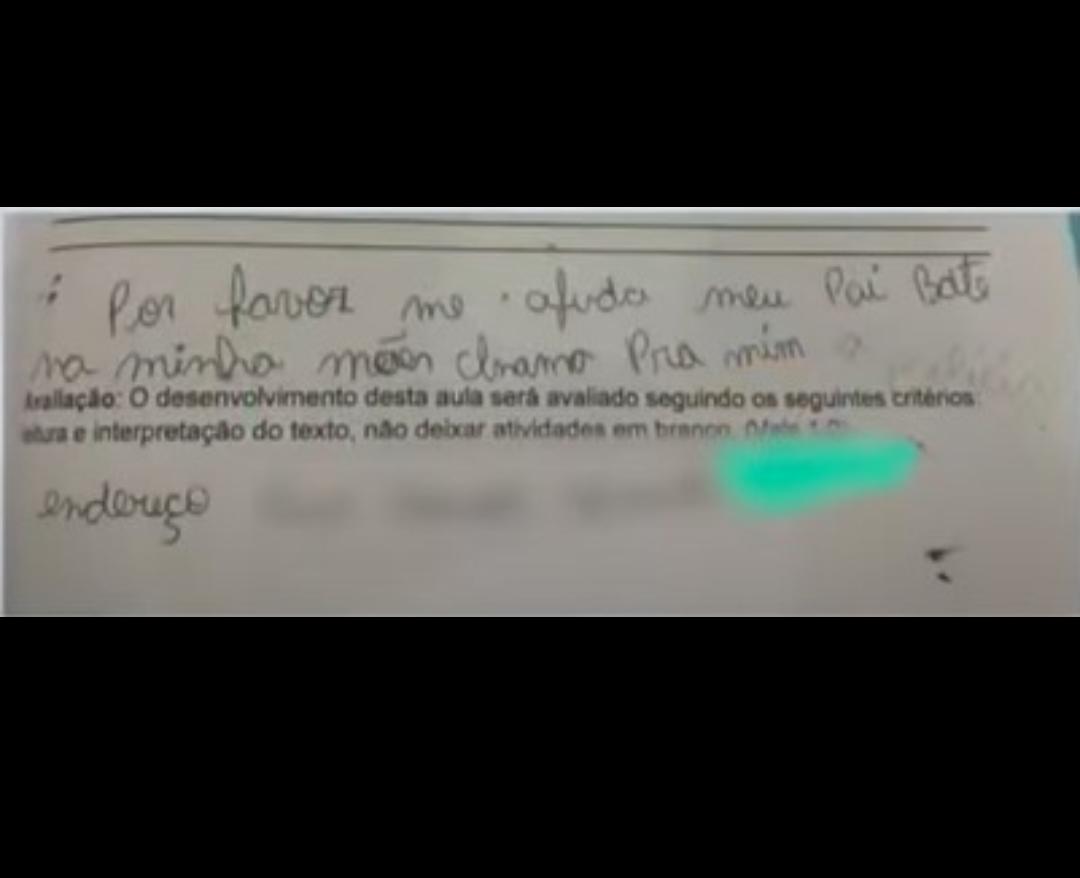 : Por favor me ajuda meu Pai Bate
na minha mãe chama Pra mim a
Avaliação: O desenvolvimento desta aula será avaliado seguindo os seguintes critérios:
e interpretação do texto, não deixar atividades em branco.
endereço